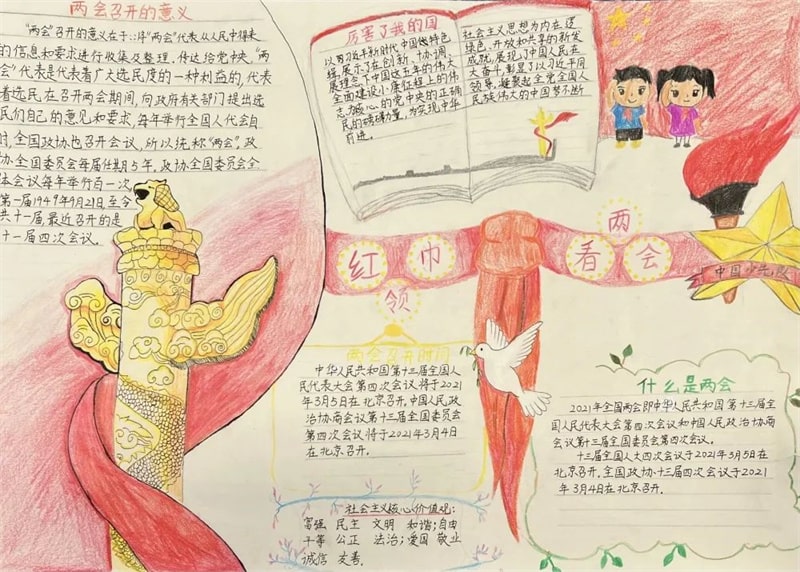 两会召开的意义
"两会"召开的意义在于:将"两会"代表从人民中得来
的信息和要求进行收集及整理,传达给党中央,"两
会"代表是代表着广大选民度的一种利益的,代表
着选民在召开两会期间,向政府有关部门提出选
民们自己的意见和要求,每年举行全国人代会自
时,全国政协也召开会议,所以统称"两会"。政
协全国委员会每届任期5年,政协全国委员会全
体会议每年举行一次
第一届1949年9月21日至今
共十一届,最近召开的是
十一届四次会议。
厉害了我的国
以习近平新时代中国
特色
展示了在创新、协调、
展理念下中国这五年的伟大
全面建设小康征程上的伟
志为核心的党中央的正确
民的磅礴力量,为实现中华
前进。
社会主义思想为内在逻
绿色、开放和共享的新发
成就,展现了中国人民在
大奋斗,彰显了以习近平同
领导,凝聚起全党全国人
民族伟大的中国梦不断
红领巾看两会
中国少先队
两会召开时间
中华人民共和国第十三届全国人
民代表大会第四次会议将于2021
年3月5日在北京召开,中国人民政
治协商会议第十三届全国委员会
第四次会议将于2021年3月4日
在北京召开.
社会主义核心价值观:
富强 民主 文明 和谐;自由
平等 公正 法治;爱国 敬业
诚信 友善.
什么是两会
2021年全国两会即中华人民共和国第十三届全
国人民代表大会第四次会议和中国人民政治协商
会议第十三届全国委员会第四次会议。
十三届全国人大四次会议于2021年3月5日在
北京召开,全国政协十三届四次会议于2021
年3月4日在北京召开.